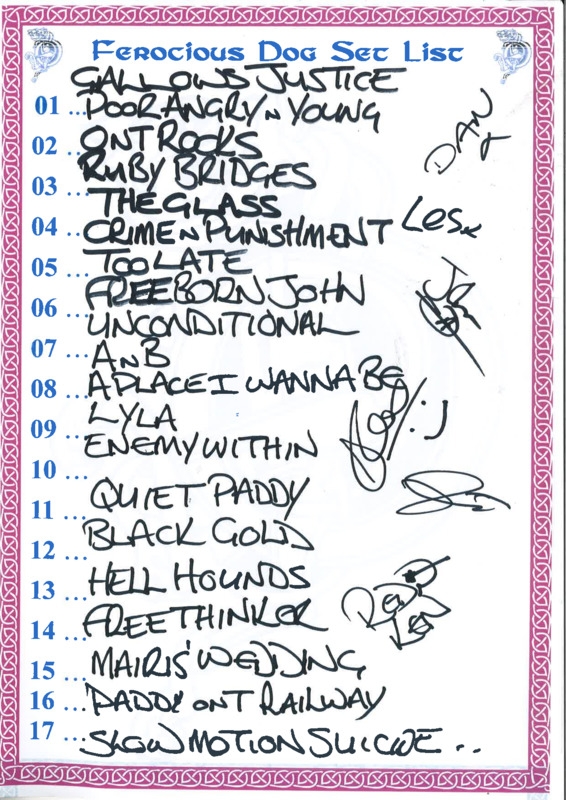 Ferocious Dog Set List
GALLOWS JUSTICE
01 ... POOR ANGRY N YOUNG
02 ... ONT ROCKS
RUBY BRIDGES
03 ... THE GLASS
04 ... CRIME N PUNISHMENT
05 ... TOO LATE
FREEBORN JOHN
06 ... UNCONDITIONAL
07 ... A N B
08 ... A PLACE I WANNA BE
LYLA
09 ... ENEMY WITHIN
10 ...
11 ... QUIET PADDY
12 ... BLACK GOLD
13 ... HELL HOUNDS
14 ... FREE THINKER
15 ... MAIRIS' WEDDING
16 ... 'PADDY' ONT RAILWAY
17 ... SLOW MOTION SUICIDE ..
DAN
LES